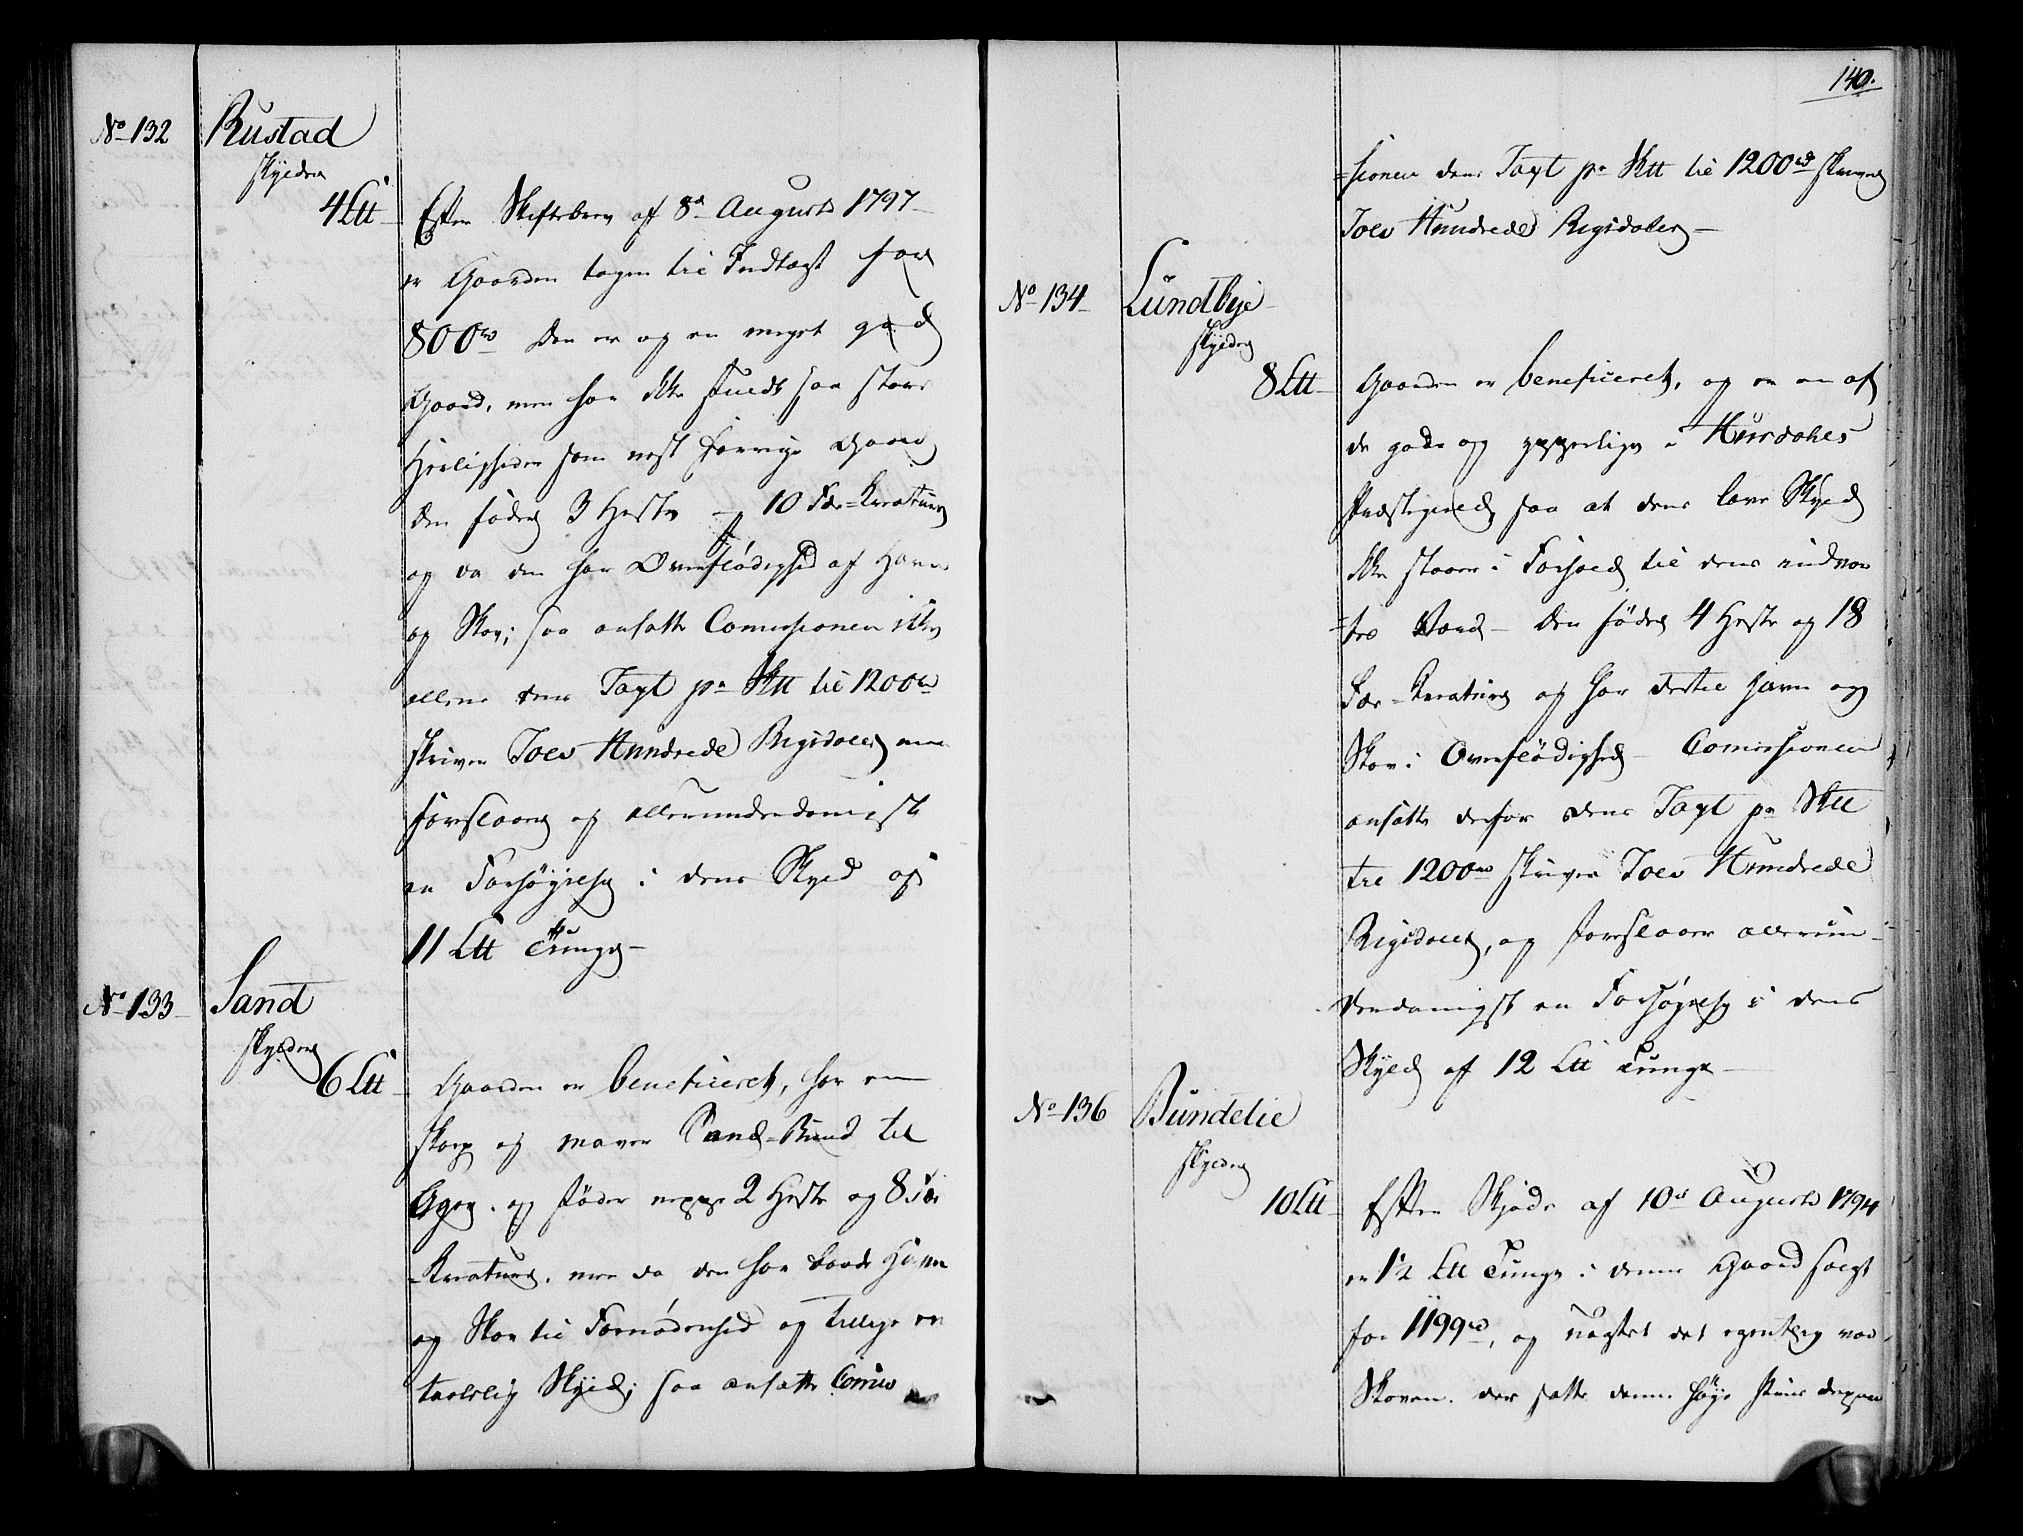 No 132 Rustad
skylder
4 Ltt
Efter Skiftebrev af 8de Augusti 1797
er Gaarden tagen til Indtægt for
800rd den er og en meget god
Gaard, men har ikke fuldt saa store
Herligheder som nest forrige Gaard
den föder 3 Heste 10 Fæ-Kreaturer
og da den har Overflödighed af Havn
og Skov; saa ansatte Comissionen ikke
allene dens Taxt pr Sktt til 1200rd
skriver Tolv Hundrede Rigsdaler men
forslaaer og allerunderdanigst
en Forhöyelse i dens Skyld af
11 Ltt Tunge
No 133 Sand
skylder
6 Ltt
Gaarden er beneficeret, har en
skarp og maver Sand-Bund til
Ager og föder neppe 2 Heste og 8 Fæ
Kreaturer, men da den har baade Havn
og Skov til Fornödenhed og tillige en
taalelig Skyld; saa ansatte Comis
140.
=sionen dens Taxt pr Sktt til 1200rd skriver
Tolv Hundrede Rigsdaler
No 134 Lundbye
skylder
8 Ltt
Gaarden er beneficeret, og er en af
de gode og ypperlige i Hurdahls
Præstegield, saa at dens lave Skyld
ikke staaer i Forhold til dens indvor
=tes Værd den föder 4 Heste og 18
Fæ-Kreaturer og har dertil havn og
Skov i Overflödighed Comissionen
ansatte derfor dens Taxt pr Sktt
til 1200rd skriver Tolv Hundrede
Rigsdaler, og forslaaer allerun=
derdanigst en Forhöyelse i dens
Skyld af 12 Ltt Tunge
No 136 Bundelie
skylder
10 Ltt
Efter Skjöde af 10de Augusti 1794
er 1½ Ltt Tunge i denne Gaard solgt
for 1199rd, og uagtet det egentlig var
Skoven der satte denne höye Priis